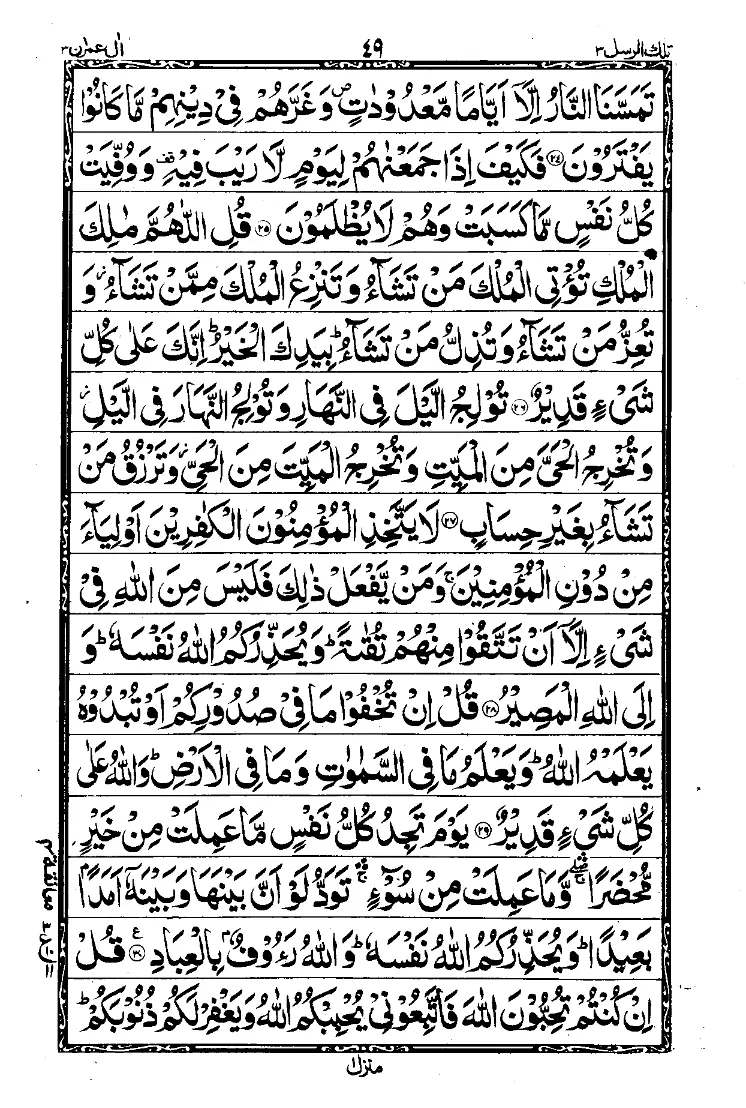 تلك الرسل ٣ ٤٩ اٰل عمرٰن ٣
تَمَسَّنَا النَّارُ اِلَّاۤ اَيَّامًا مَّعْدُوْدٰتٍ ۪ وَغَرَّهُمْ فِيْ دِيْنِهِمْ مَّا كَانُوْا
يَفْتَرُوْنَ ﴿٢٤﴾ فَكَيْفَ اِذَا جَمَعْنٰهُمْ لِيَوْمٍ لَّا رَيْبَ فِيْهِ ۫ وَوُفِّيَتْ
كُلُّ نَفْسٍ مَّا كَسَبَتْ وَهُمْ لَا يُظْلَمُوْنَ ﴿٢٥﴾ قُلِ اللّٰهُمَّ مٰلِكَ
الْمُلْكِ تُؤْتِي الْمُلْكَ مَنْ تَشَآءُ وَتَنْزِعُ الْمُلْكَ مِمَّنْ تَشَآءُ ؗ وَ
تُعِزُّ مَنْ تَشَآءُ وَتُذِلُّ مَنْ تَشَآءُ ؕ بِيَدِكَ الْخَيْرُ ؕ اِنَّكَ عَلٰى كُلِّ
شَيْءٍ قَدِيْرٌ ﴿٢٦﴾ تُوْلِجُ الَّيْلَ فِي النَّهَارِ وَتُوْلِجُ النَّهَارَ فِي الَّيْلِ ؗ
وَتُخْرِجُ الْحَيَّ مِنَ الْمَيِّتِ وَتُخْرِجُ الْمَيِّتَ مِنَ الْحَيِّ ؗ وَتَرْزُقُ مَنْ
تَشَآءُ بِغَيْرِ حِسَابٍ ﴿٢٧﴾ لَا يَتَّخِذِ الْمُؤْمِنُوْنَ الْكٰفِرِيْنَ اَوْلِيَآءَ
مِنْ دُوْنِ الْمُؤْمِنِيْنَ ۚ وَمَنْ يَّفْعَلْ ذٰلِكَ فَلَيْسَ مِنَ اللّٰهِ فِيْ
شَيْءٍ اِلَّاۤ اَنْ تَتَّقُوْا مِنْهُمْ تُقٰىةً ؕ وَيُحَذِّرُكُمُ اللّٰهُ نَفْسَهٗ ؕ وَ
اِلَى اللّٰهِ الْمَصِيْرُ ﴿٢٨﴾ قُلْ اِنْ تُخْفُوْا مَا فِيْ صُدُوْرِكُمْ اَوْ تُبْدُوْهُ
يَعْلَمْهُ اللّٰهُ ؕ وَيَعْلَمُ مَا فِي السَّمٰوٰتِ وَمَا فِي الْاَرْضِ ؕ وَاللّٰهُ عَلٰى
كُلِّ شَيْءٍ قَدِيْرٌ ﴿٢٩﴾ يَوْمَ تَجِدُ كُلُّ نَفْسٍ مَّا عَمِلَتْ مِنْ خَيْرٍ
مُّحْضَرًا ۛۖۚ وَّمَا عَمِلَتْ مِنْ سُوْٓءٍ ۛۚ تَوَدُّ لَوْ اَنَّ بَيْنَهَا وَبَيْنَهٗۤ اَمَدًۢا
بَعِيْدًا ؕ وَيُحَذِّرُكُمُ اللّٰهُ نَفْسَهٗ ؕ وَاللّٰهُ رَءُوْفٌۢ بِالْعِبَادِ ﴿٣٠﴾ ع قُلْ
اِنْ كُنْتُمْ تُحِبُّوْنَ اللّٰهَ فَاتَّبِعُوْنِيْ يُحْبِبْكُمُ اللّٰهُ وَيَغْفِرْ لَكُمْ ذُنُوْبَكُمْ ؕ
منزل ١